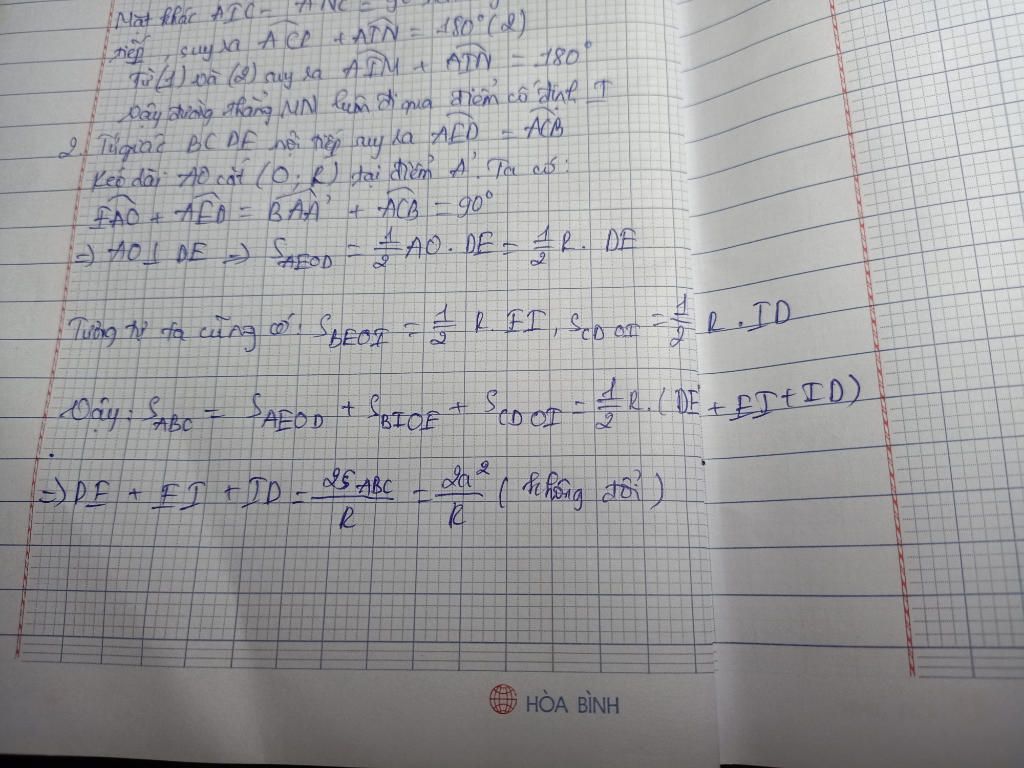 Mặt khác AIC = ANC =
tiếp, suy ra ACP + AIN = 180° (2)
Từ (1) và (2) suy ra AIM + AIN = 180°
Vậy đường thẳng MN luôn đi qua điểm cố định I
2. Tứ giác BCDE nội tiếp suy ra AED = ACB
Kéo dài AO cắt (O; R) tại điểm A'. Ta có:
EAO + AED = BAA' + ACB = 90°
=> AO ⊥ DE => S_AEOD = 1/2 AO . DE = 1/2 R . DE
Tương tự ta cũng có: S_BEOI = 1/2 R . EI, S_CDOI = 1/2 R . ID
Vậy: S_ABC = S_AEOD + S_BIOE + S_CDOI = 1/2 R. (DE + EI + ID)
=> DE + EI + ID = 2S_ABC/R = 2a²/R (không đổi)
HÒA BÌNH